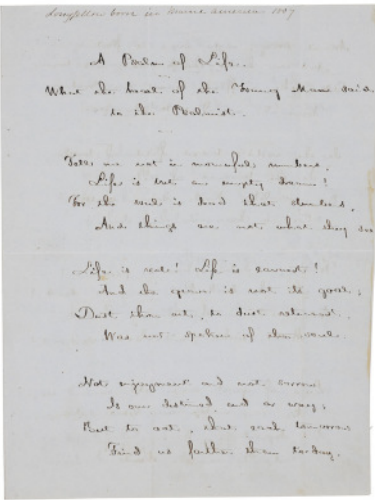 Longfellow born in America 1807
A Psalm of Life.
What the heart of the Young Man said
to the Psalmist.
Tell me not in mournful numbers,
Life is but an empty dream!
For the soul is dead that slumbers,
And things are not what they seem
Life is real! Life is earnest!
And the grave is not its goal;
Dust thou art, to dust returnest,
Was not spoken of the soul.
Not enjoyment and not sorrow
Is our destined end or way;
But to act, that each tomorrow
Find us farther than to-day.